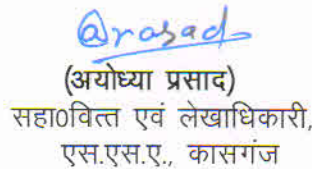 (अयोध्या प्रसाद)
सहा0वित्त एवं लेखाधिकारी,
एस.एस.ए., कासगंज